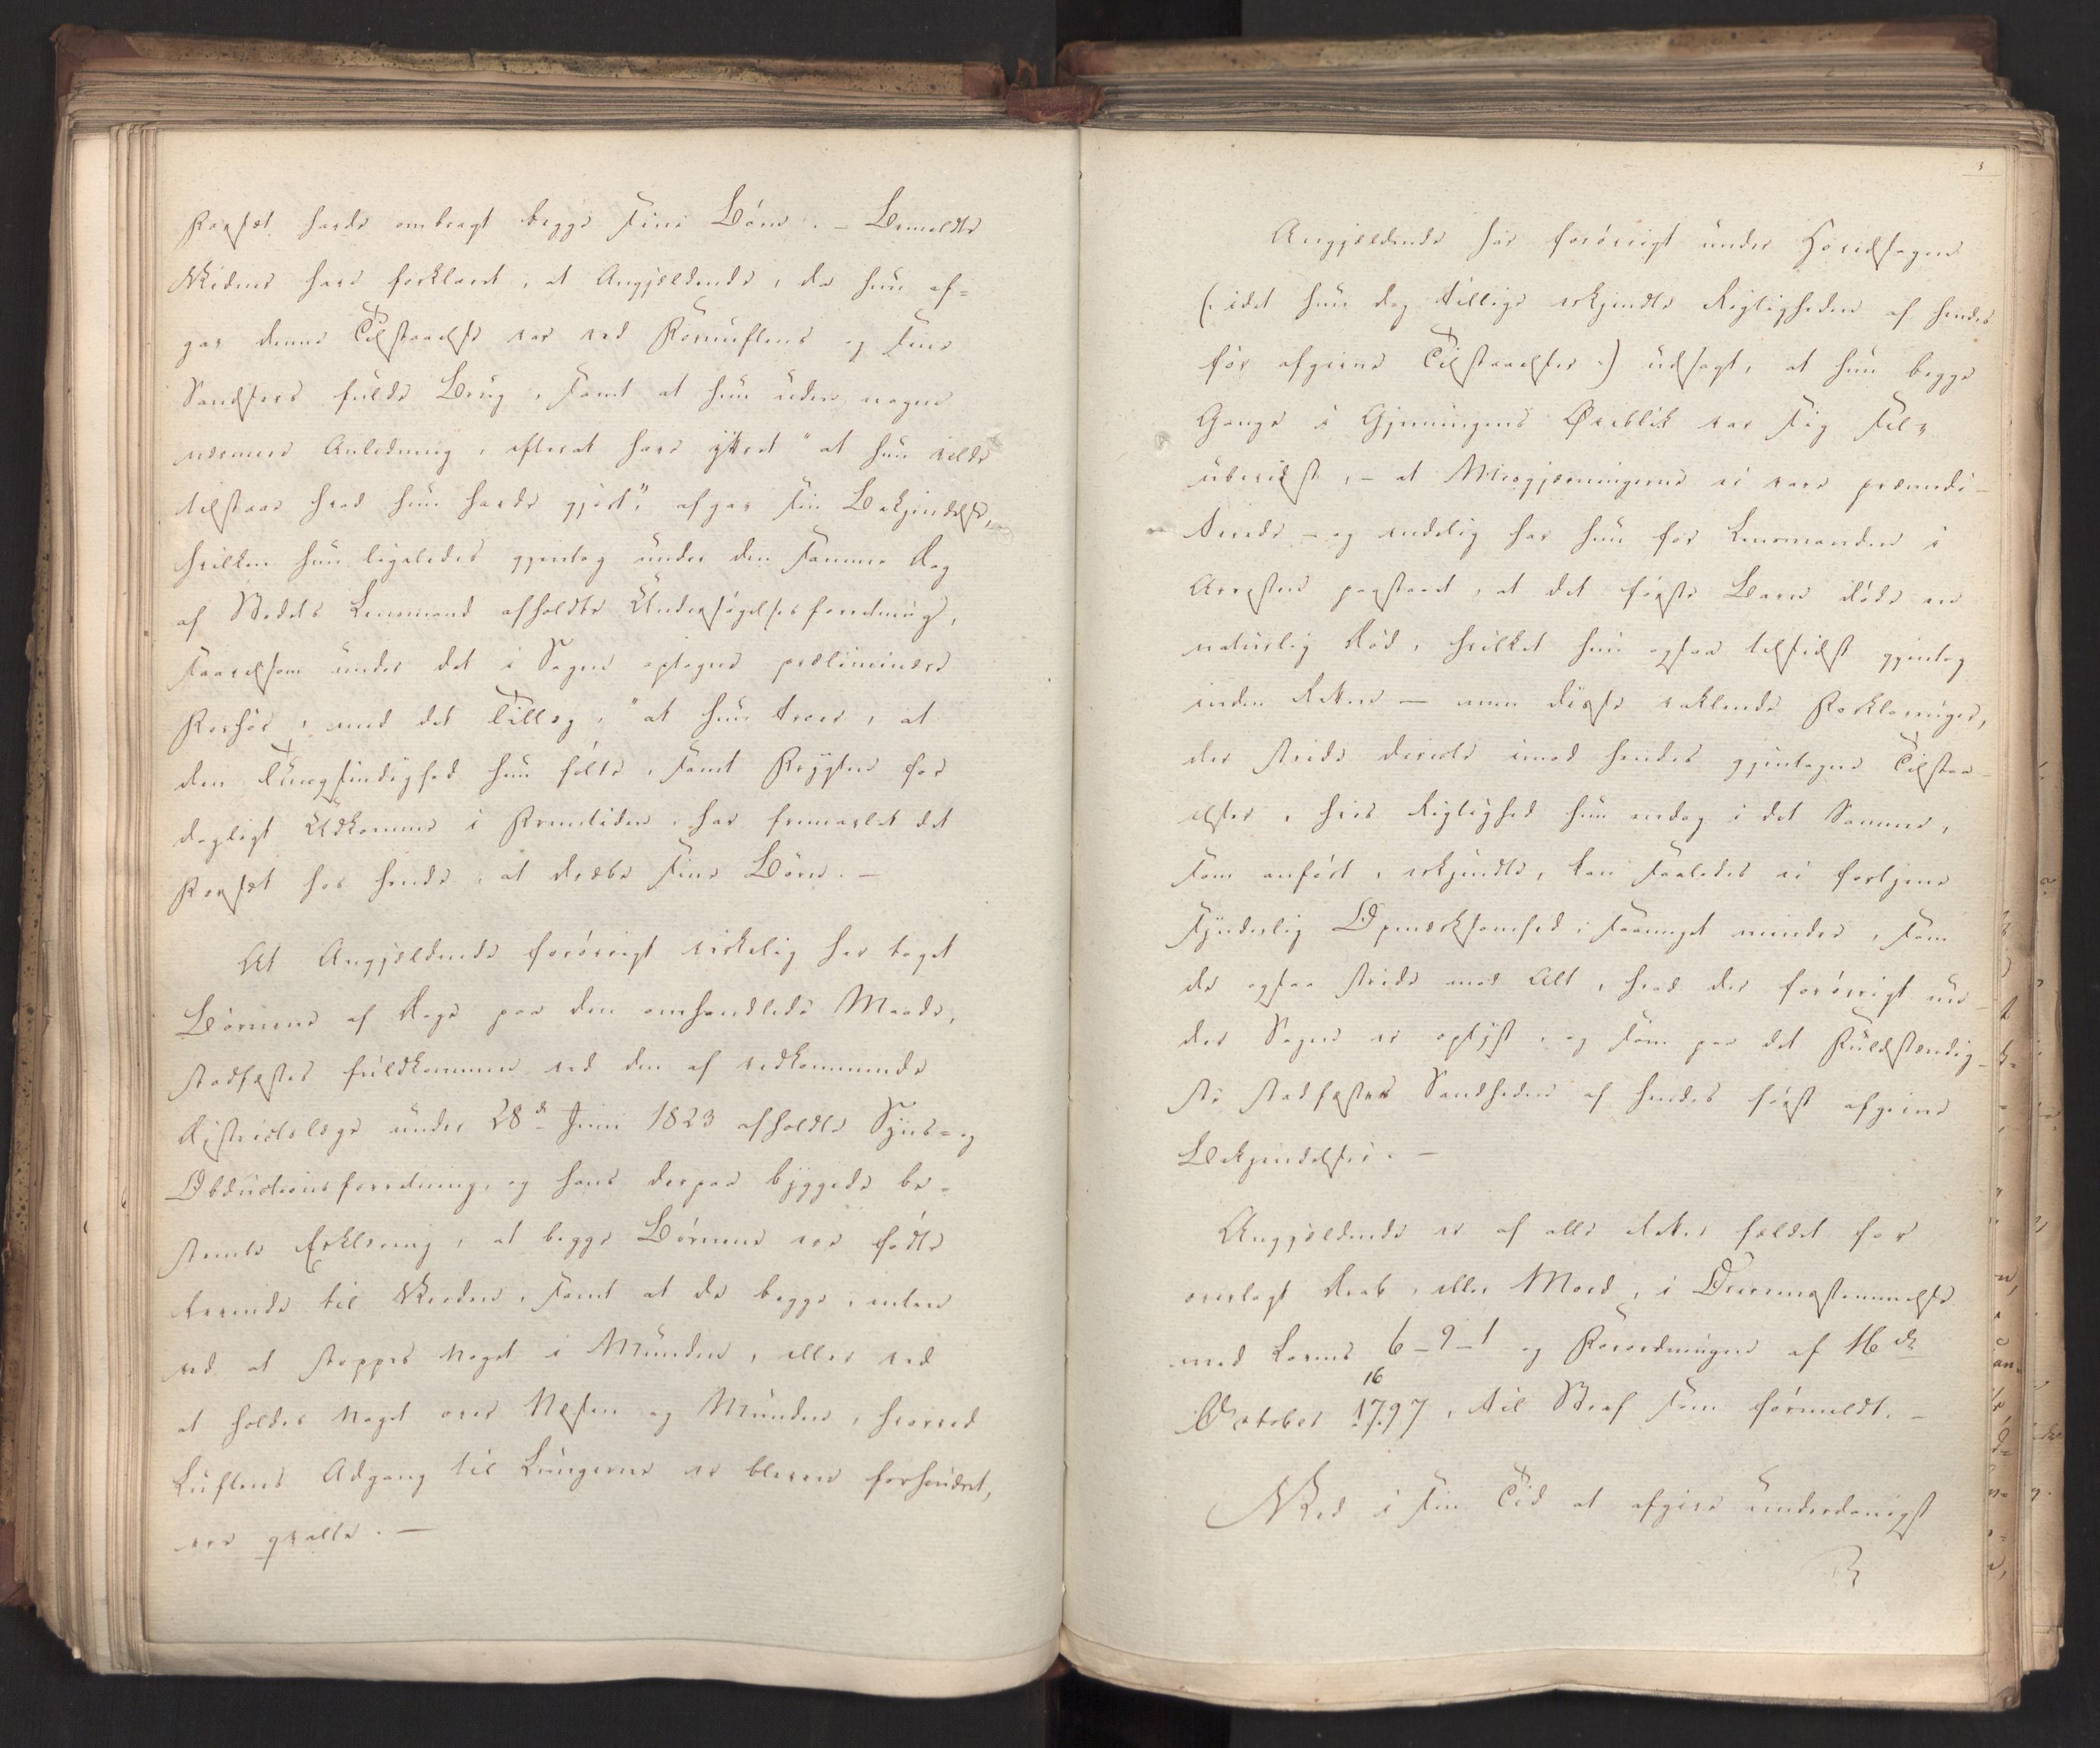 Forsæt havde ombragt begge sine Börn. – Bemeldte
Vidner have forklaret, at Angjeldende, da hun af=
gav denne Tilstaaelse var ved Fornuftens og sine
Sandsers fulde Brug, samt at hun uden nogen
nærmere Anledning, efterat have yttret "at hun vilde
tilstaae hvad hun havde gjort", afgav sin Bekjendelse,
hvilken hun ligeledes gjentog under den samme Dag
af Stedets Lensmand afholdte Undersögelsesforretning,
saavelsom under det i Sagen optagne præliminære
Forhör, med det Tillæg, "at hun troer, at
den Tungsindighed hun fölte, samt Frygten for
dagligt Udkomme i Fremtiden, har fremavlet det
Forsæt hos hende, at dræbe sine Börn. –
At Angjeldende forövrigt virkelig har taget
Börnene af Dage paa den omhandlede Maade,
stadfæstes fuldkommen ved den af vedkommende
Districtslæge under 28de Juni 1823 afholdte Syns= og
Obductionsforretning, og hans derpaa byggede be=
stemte Erklæring, at begge Börnene ere födte
levende til Verden, samt at de begge, enten
ved at stoppes Noget i Munden, eller ved
at holdes Noget over Næsen og Munden, hvorved
Luftens Adgang til Lungerne er bleven forhindret,
ere qvalte. –
Angjeldende har forövrigt under Hovedsagen
(: idet hun dog tillige erkjendte Rigtigheden af hendes
för afgivne Tilstaaelser :) udsagt, at hun begge
Gange i Gjerningens Öieblik var sig selv
ubevidst, – at Misgjerningerne ei vare præmedi-
terede – og endelig har hun for Lensmanden i
Arresten paastaaet, at det förste Barn döde en
naturlig Död, hvilket hun ogsaa tilsidst gjentog
inden Retten – men disse vaklende Forklaringer,
der stride directe imod hendes gjentagne Tilstaa-
elser, hvis Rigtighed hun endog i det Samme,
som anfört, erkjendte, kan saaledes ei fortjene
synderlig Opmærksomhed, saameget mindre, som
de ogsaa stride mod Alt, hvad der forövrigt un-
der Sagen er oplyst, og som paa det Fuldstændig-
ste stadfæster Sandheden af hendes först afgivne
Bekjendelser. –
Angjeldende er af alle Retter fældet for
overlagt Drab, eller Mord, i Overeensstemmelse
med Lovens 6–9–1 og Forordningen af 16de
16
October 1797, til Straf som förmeldt. –
Ved i sin Tid at afgive underdanigst